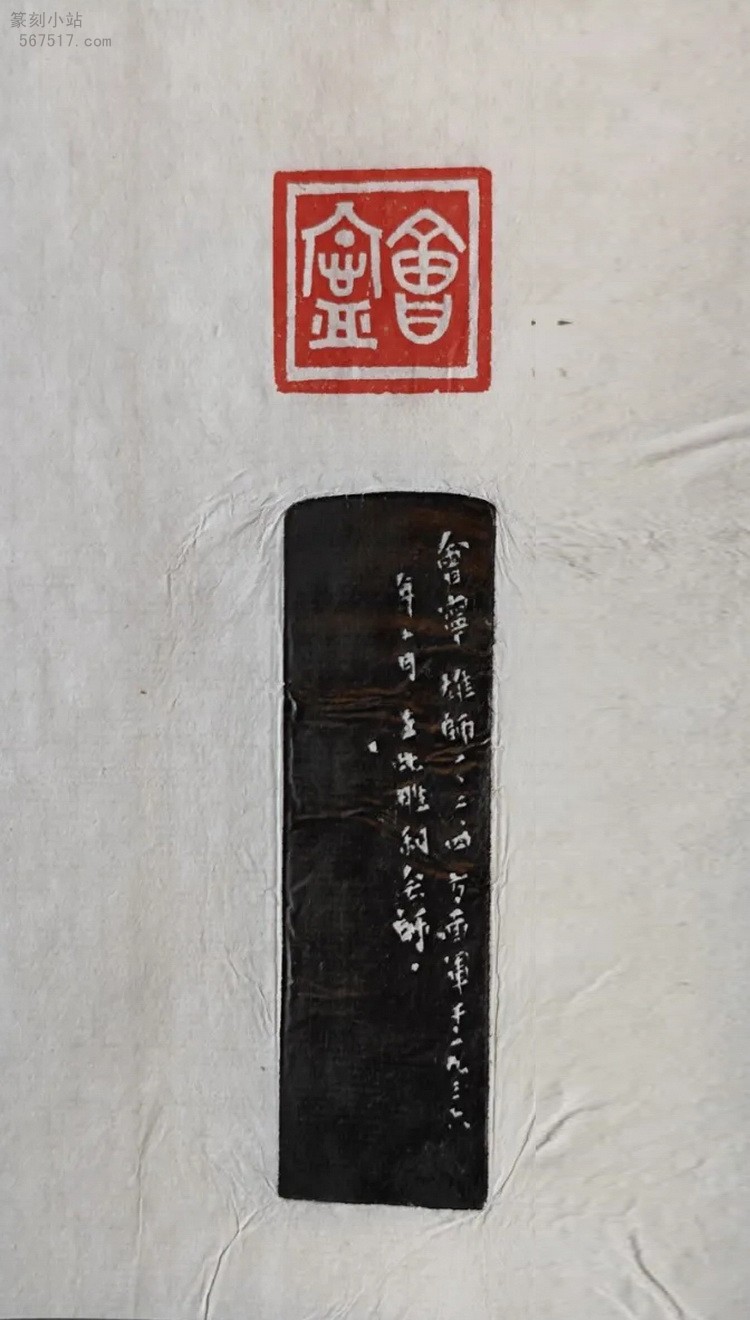 篆刻小站
567517.com
會寍
會寧雄師一、二、四方面軍于一九三六
年十月在此胜利会師。